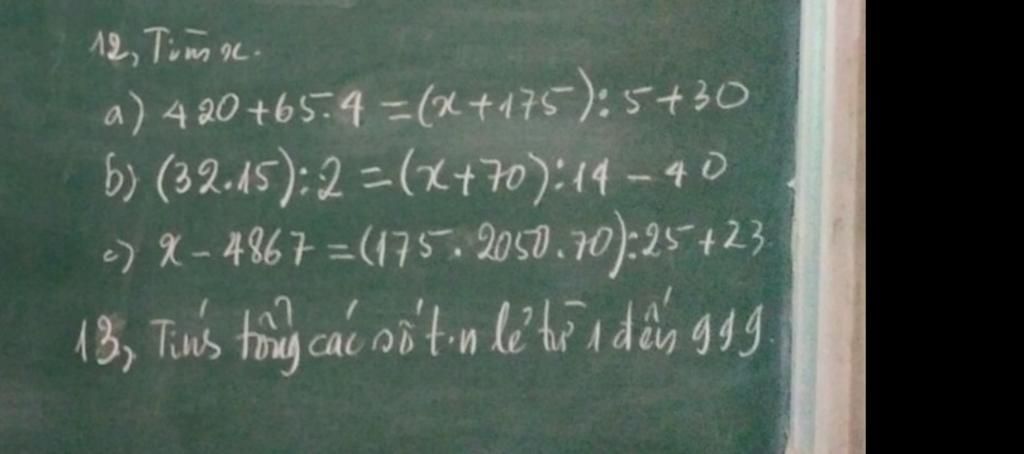 12, Tìm x.
a) 420+65.4 = (x+175):5+30
b) (32.15):2 = (x+70):14 - 40
c) x - 4867 = (175.2050.70):25+23
13, Tính tổng các số t.n lẻ từ 1 đến 999.